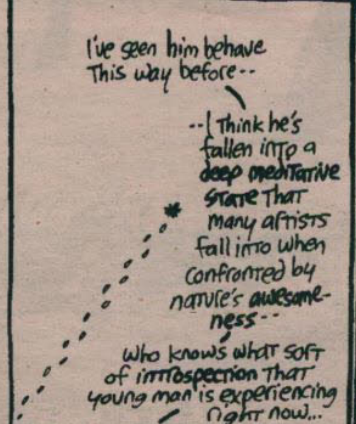 I've seen him behave
This way before--
--I Think he's
fallen into a
deep meditative
state that
many artists
fall into when
confronted by
nature's awesome-
ness--
who knows what sort
of introspection that
young man is experiencing
right now...